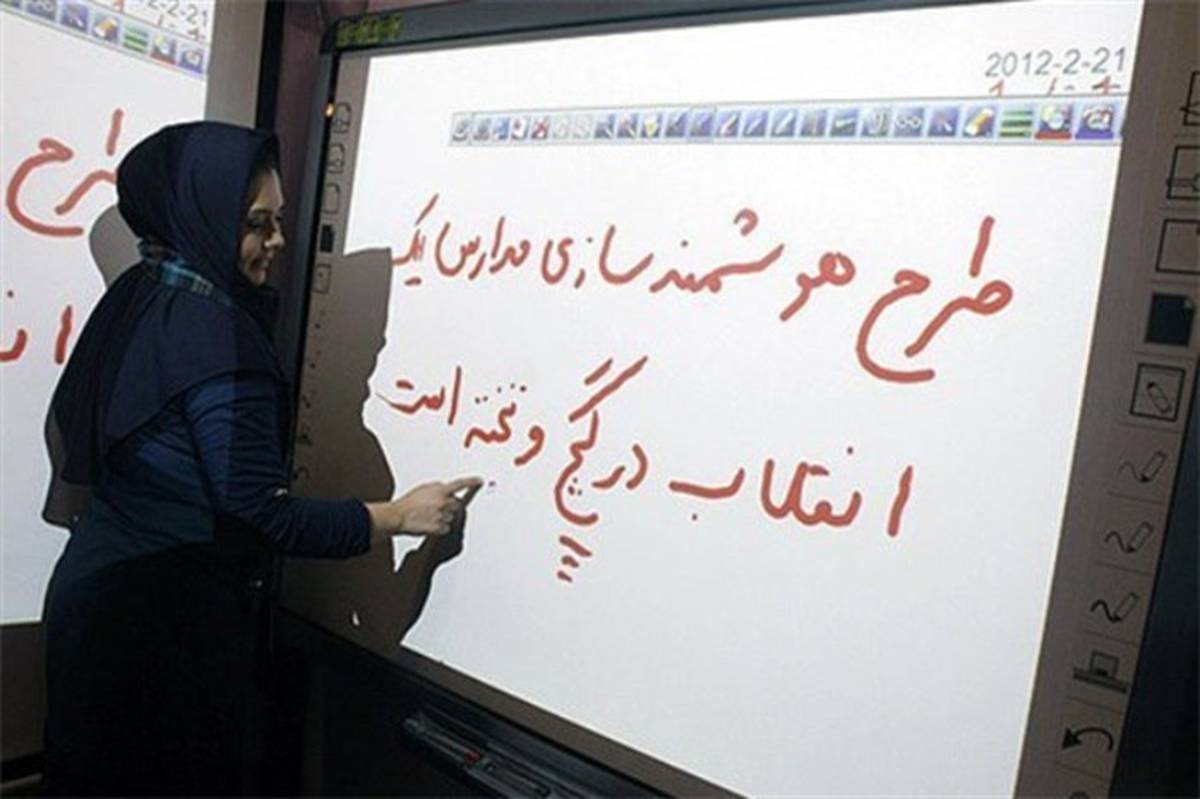 2012-2-21
طرح هوشمند سازی مدارس یک
انقلاب در گچ و تخته است
2-2-21
طرح